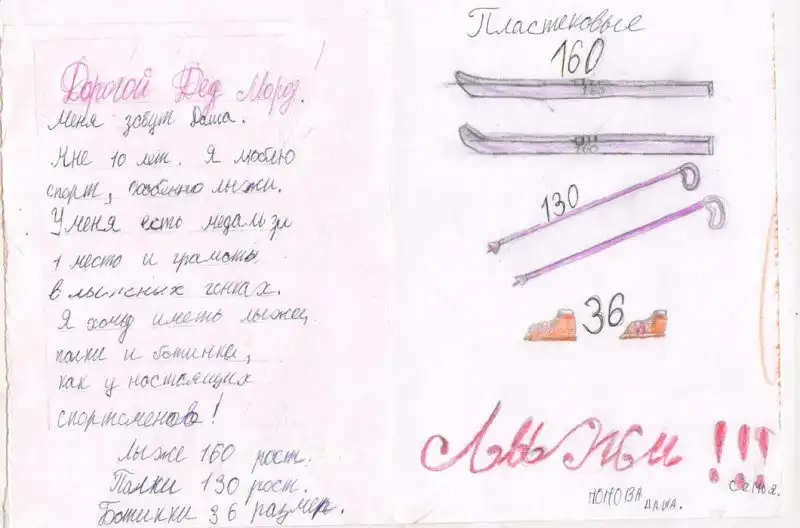 Дорогой Дед Мороз!
Меня зовут Даша.
Мне 10 лет. Я люблю
спорт, особенно лыжи.
У меня есть медаль за
1 место и грамоты
в лыжных гонках.
Я хочу иметь лыжи,
палки и ботинки,
как у настоящих
спортсменов!
Лыже 160 рост.
Палки 130 рост.
Ботинки 36 размер.
Пластековые
160
160
160
130
36
Лыжи!!!
Даша.